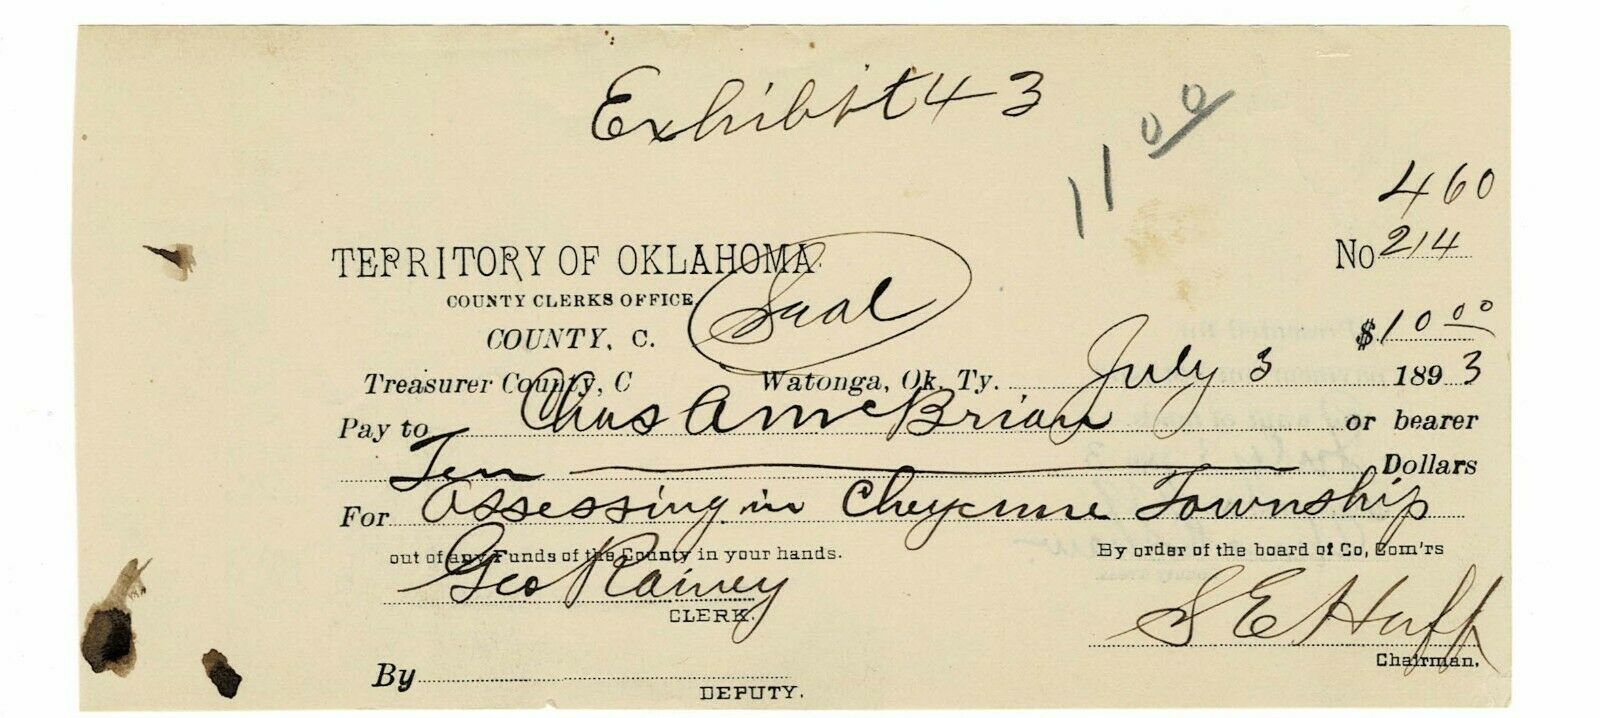 Exhibit 43
11 00
460
TERRITORY OF OKLAHOMA.
No 214
COUNTY CLERKS OFFICE,
Seal
COUNTY, C.
$10 00
Treasurer County, C Watonga, Ok. Ty. July 3 1893
Pay to Chas A McBrian or bearer
Ten Dollars
For Assessing in Cheyenne Township
out of any Funds of the County in your hands.
By order of the board of Co, Com'rs
Geo Rainey
CLERK.
S E Huff
Chairman.
By
DEPUTY.